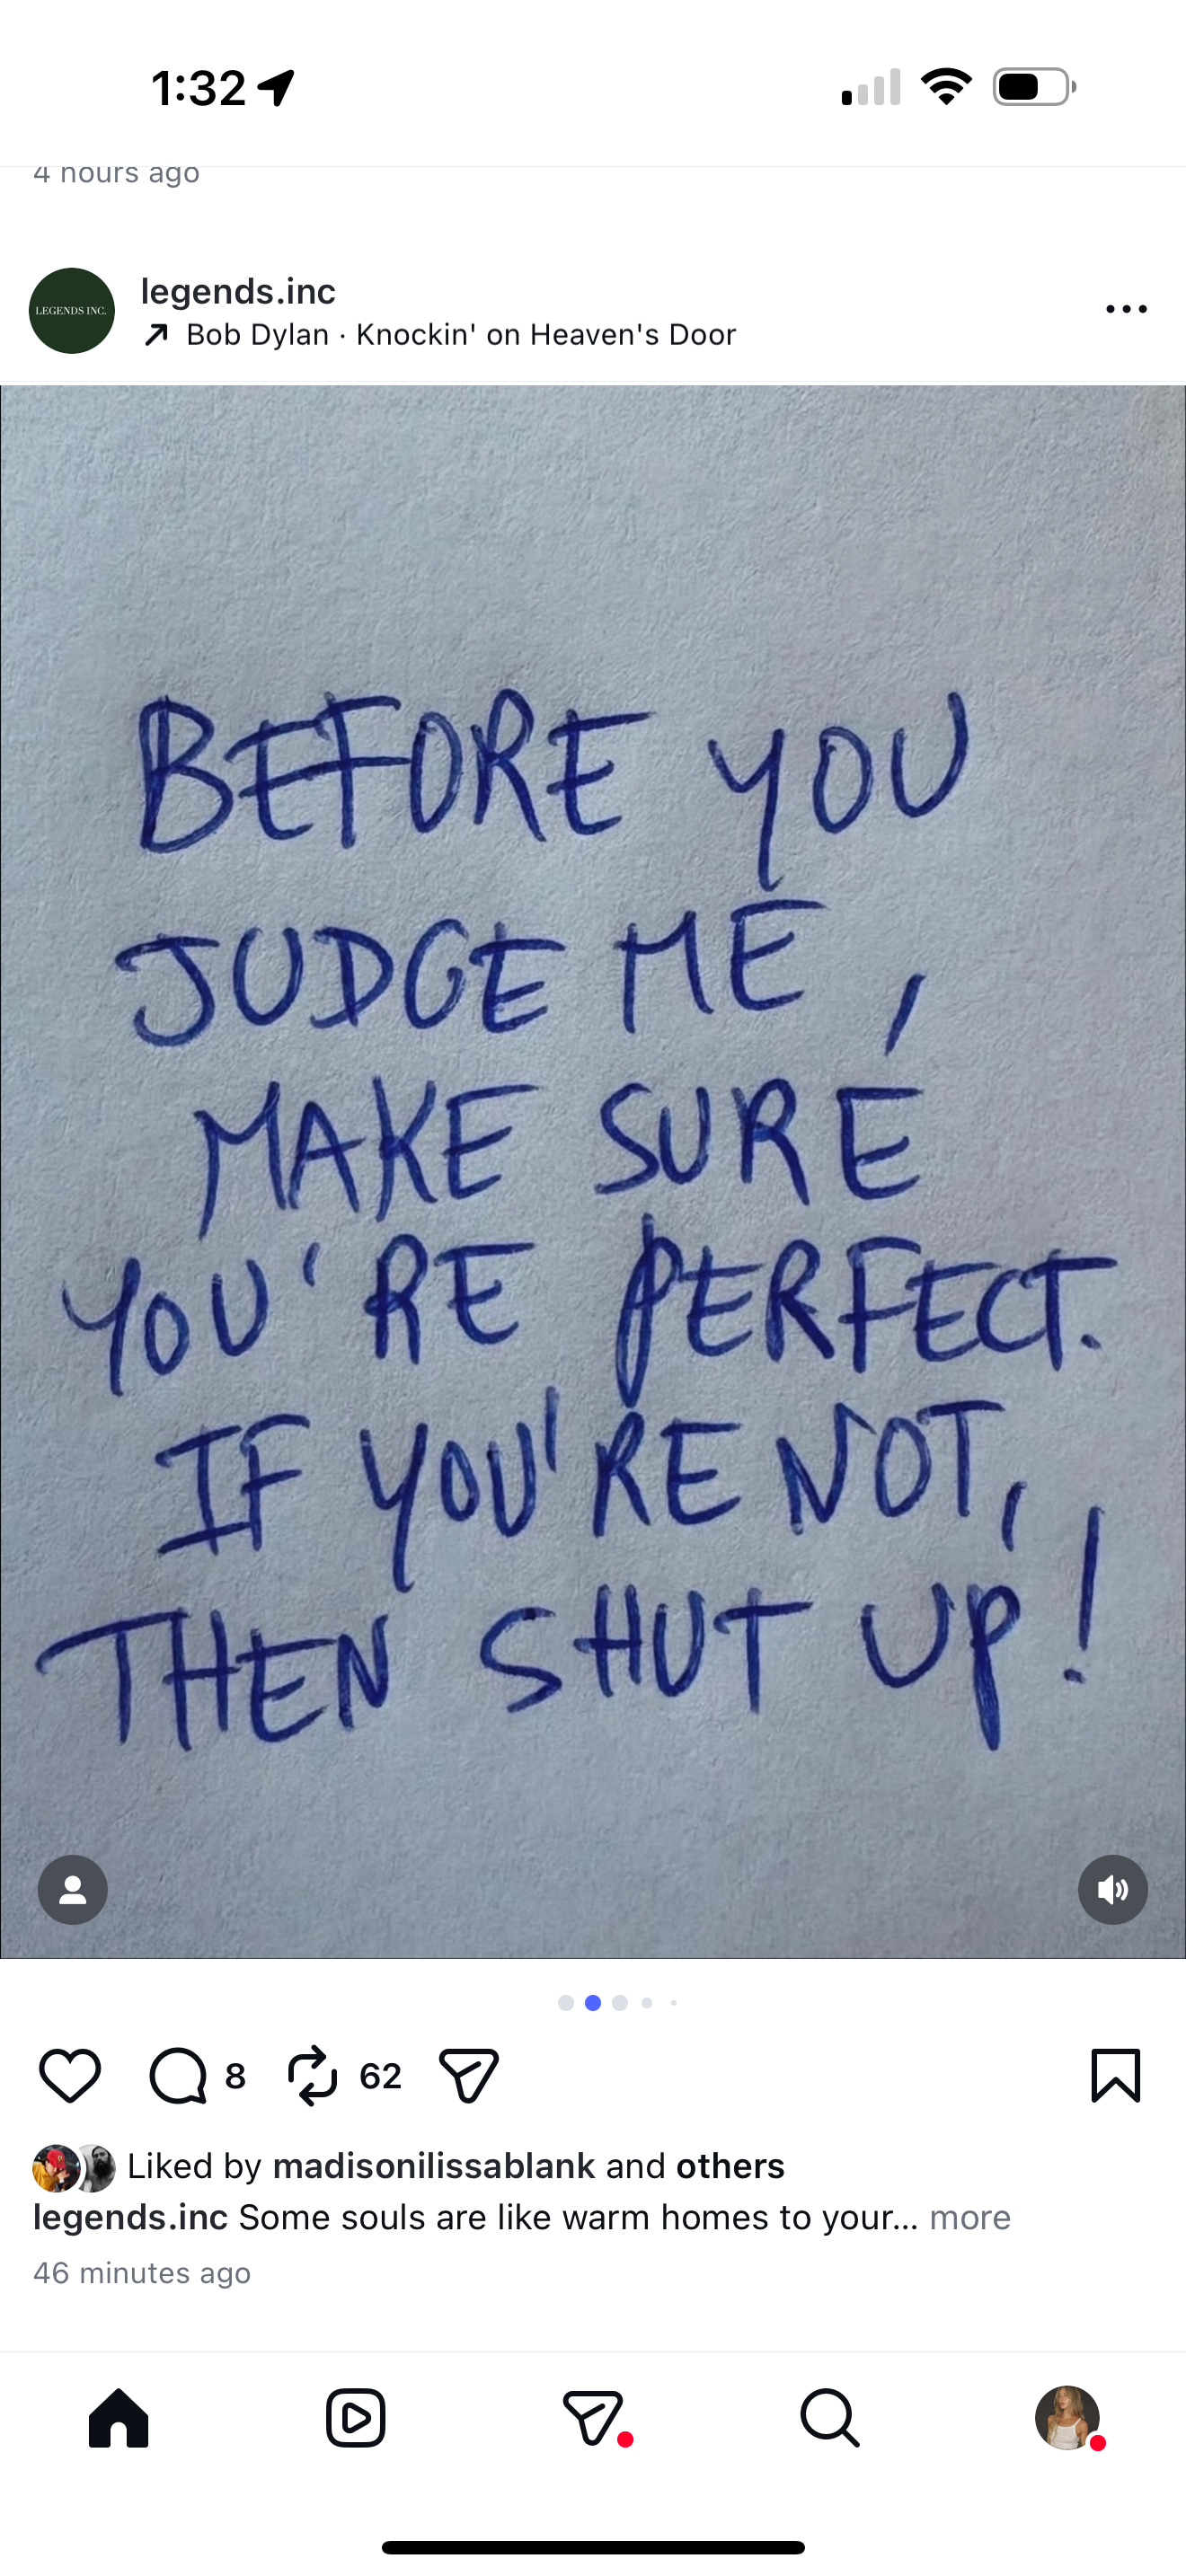 1:32
4 hours ago
LEGENDS INC.
legends.inc
Bob Dylan · Knockin' on Heaven's Door
BEFORE YOU
JUDGE ME,
MAKE SURE
YOU'RE PERFECT.
IF YOU'RE NOT,
THEN SHUT UP!
8
62
Liked by madisonilissablank and others
legends.inc Some souls are like warm homes to your... more
46 minutes ago